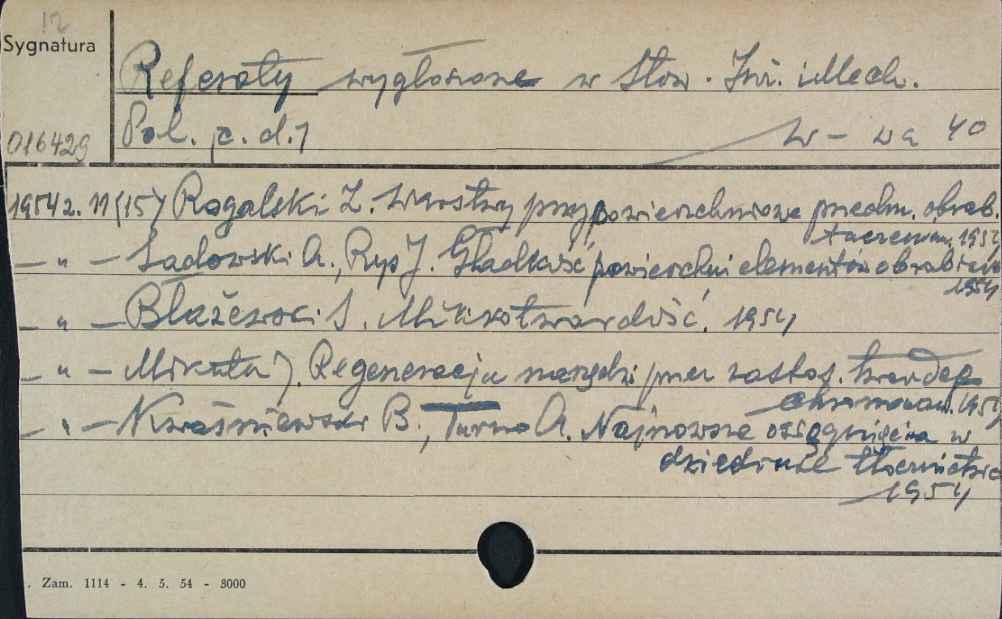 12
Sygnatura
Referaty wygłoszone w Stow. Inż. i Mech.
016429 Pol. c. d. 1 W-wa 40
1954 z. 11(15) Rogalski Z. Warstwy przypowierzchniowe przedm. obrab.
toczeniem. 1954
– " – Sadowski A., Ryś J. Gładkość powierzchni elementów obrabian
1954
– " – Błażewski S. Mikrotwardość. 1954
– " – Mikuła J. Regeneracja narzędzi przez zastos. twardego
chromowan. 1954
– " – Kwaśniewski B., Turno A. Najnowsze osiągnięcia w
dziedzinie tłocznictwa
1954
. Zam. 1114 - 4. 5. 54 - 8000